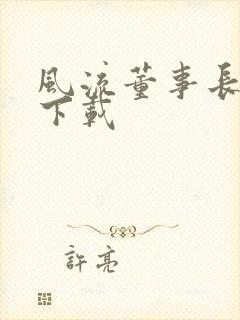 風流董事長
下載
許亮